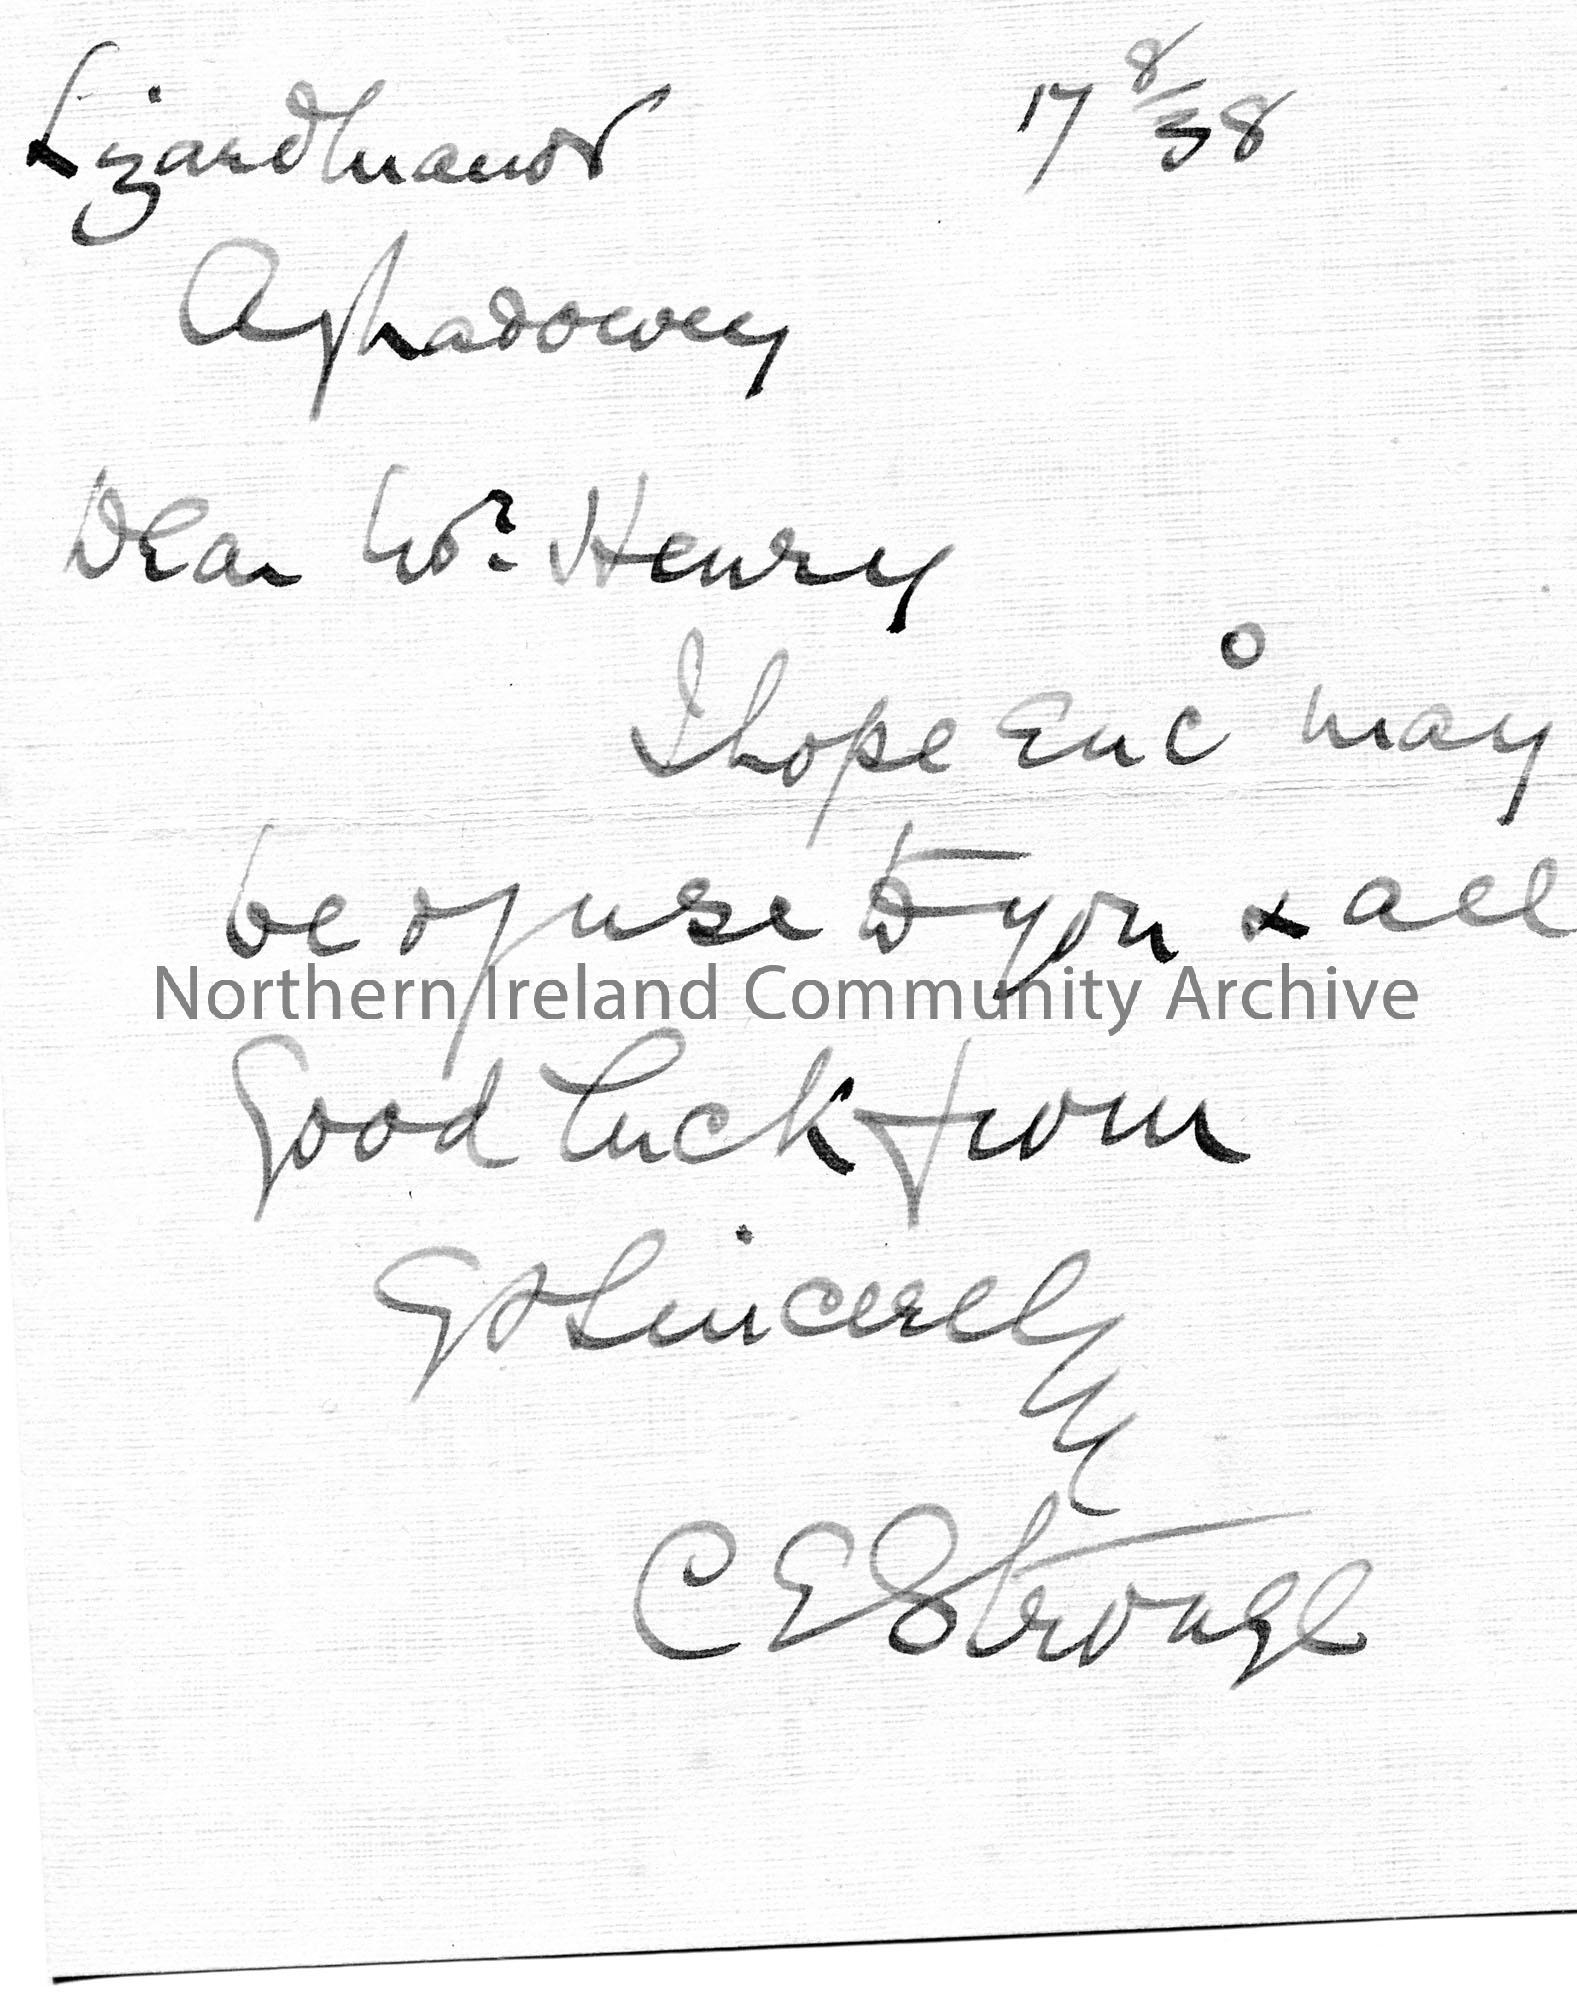 Lizardmanor 17 8/38
Aghadowey
Dear Mr. Henry
I hope Enc° may
be of use to you & all
Northern Ireland Community Archive
Good luck from
Ys Sincerely
C E Stronge